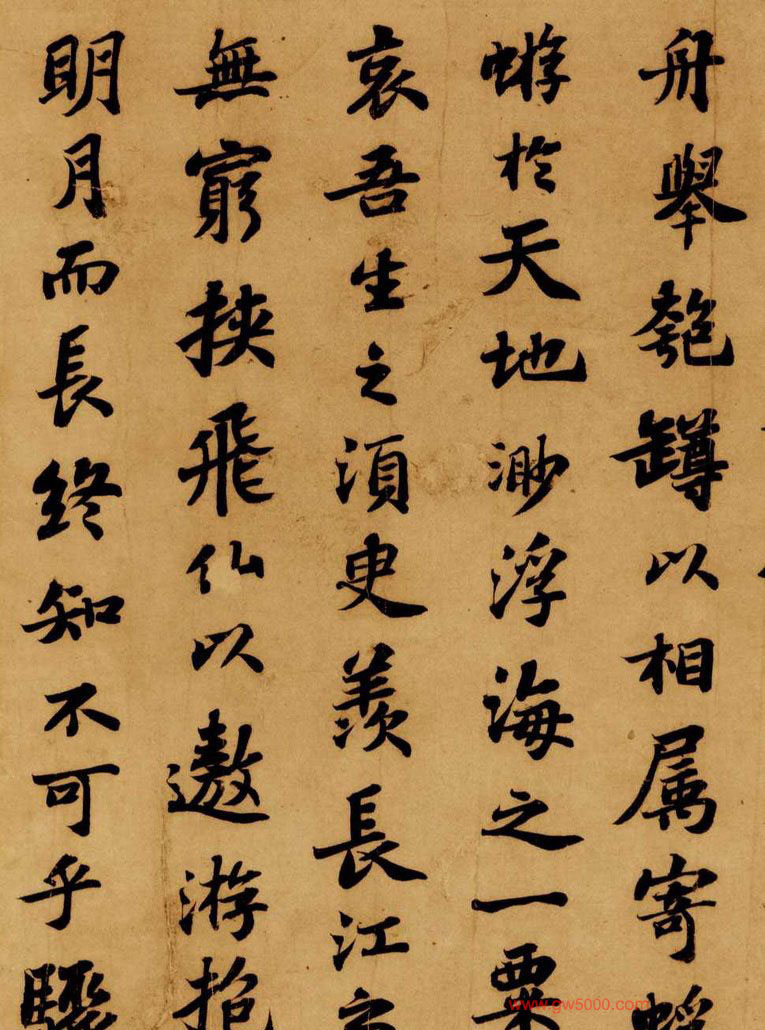 舟舉匏罇以相属寄蜉
蝣於天地渺浮海之一粟
哀吾生之湏臾羨長江之
無窮挟飛仙以遨游抱
明月而長終知不可乎驟
www.gw5000.com